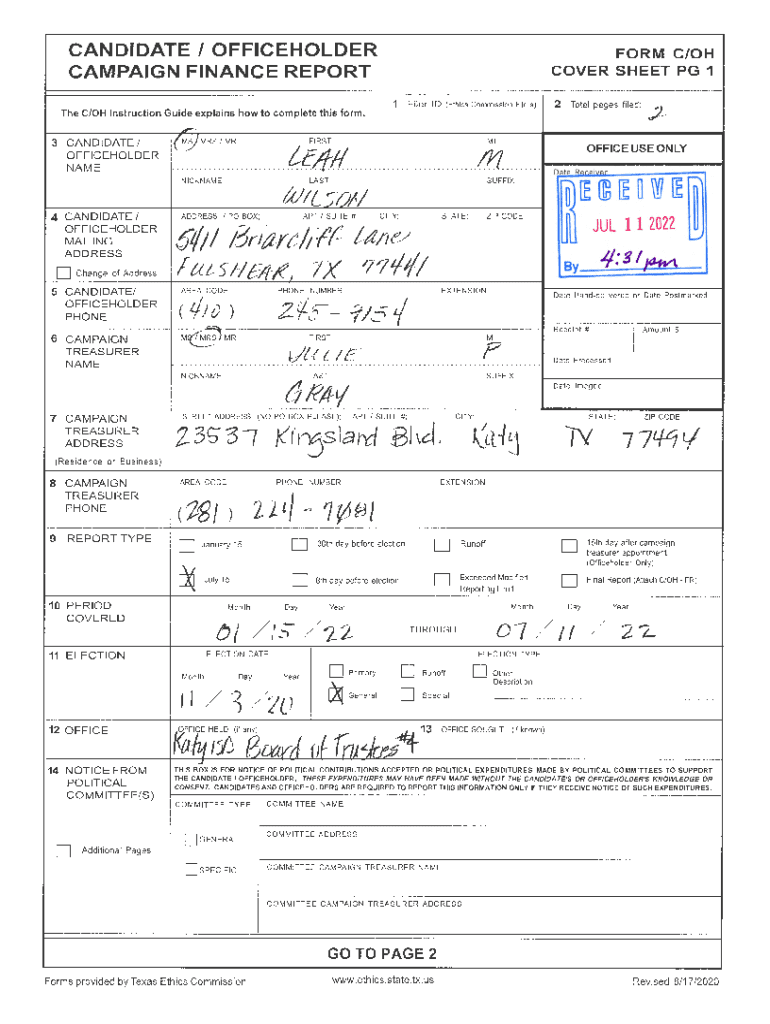 CANDIDATE / OFFICEHOLDER
CAMPAIGN FINANCE REPORT
FORM C/OH
COVER SHEET PG 1
The C/OH Instruction Guide explains how to complete this form.
1 Filer ID (Ethics Commission Filers)
2 Total pages filed:
2
3 CANDIDATE / OFFICEHOLDER NAME
MS / MRS / MR FIRST MI
LEAH M
NICKNAME LAST SUFFIX
WILSON
OFFICE USE ONLY
Date Received
RECEIVED
JUL 11 2022
By 4:31 pm
4 CANDIDATE / OFFICEHOLDER MAILING ADDRESS
Change of Address
ADDRESS / PO BOX; APT / SUITE #; CITY; STATE; ZIP CODE
5411 Briarcliff Lane
FULSHEAR, TX 77441
5 CANDIDATE/ OFFICEHOLDER PHONE
AREA CODE PHONE NUMBER EXTENSION
(410) 245-7154
Date Hand-delivered or Date Postmarked
Receipt # Amount $
Date Processed
Date Imaged
6 CAMPAIGN TREASURER NAME
MS / MRS / MR FIRST MI
JULIE P
NICKNAME LAST SUFFIX
GRAY
7 CAMPAIGN TREASURER ADDRESS
(Residence or Business)
STREET ADDRESS (NO PO BOX PLEASE); APT / SUITE #; CITY; STATE; ZIP CODE
23537 Kingsland Blvd. Katy TX 77494
8 CAMPAIGN TREASURER PHONE
AREA CODE PHONE NUMBER EXTENSION
(281)
9 REPORT TYPE
January 15 30th day before election Runoff 15th day after campaign treasurer appointment (Officeholder Only)
X July 15 8th day before election Exceeded Modified Reporting Limit Final Report (Attach C/OH - FR)
10 PERIOD COVERED
Month Day Year Month Day Year
01 / 15 / 22 THROUGH 07 / 11 / 22
11 ELECTION
ELECTION DATE ELECTION TYPE
Month Day Year
11 / 3 / 20
Primary Runoff Other Description
X General Special
12 OFFICE
OFFICE HELD (if any)
Katy ISD Board of Trustees #4
13 OFFICE SOUGHT (if known)
14 NOTICE FROM POLITICAL COMMITTEE(S)
THIS BOX IS FOR NOTICE OF POLITICAL CONTRIBUTIONS ACCEPTED OR POLITICAL EXPENDITURES MADE BY POLITICAL COMMITTEES TO SUPPORT
THE CANDIDATE / OFFICEHOLDER. THESE EXPENDITURES MAY HAVE BEEN MADE WITHOUT THE CANDIDATE'S OR OFFICEHOLDER'S KNOWLEDGE OR
CONSENT. CANDIDATES AND OFFICEHOLDERS ARE REQUIRED TO REPORT THIS INFORMATION ONLY IF THEY RECEIVE NOTICE OF SUCH EXPENDITURES.
COMMITTEE TYPE COMMITTEE NAME
GENERAL
COMMITTEE ADDRESS
Additional Pages
SPECIFIC
COMMITTEE CAMPAIGN TREASURER NAME
COMMITTEE CAMPAIGN TREASURER ADDRESS
GO TO PAGE 2
Forms provided by Texas Ethics Commission www.ethics.state.tx.us Revised 8/17/2020